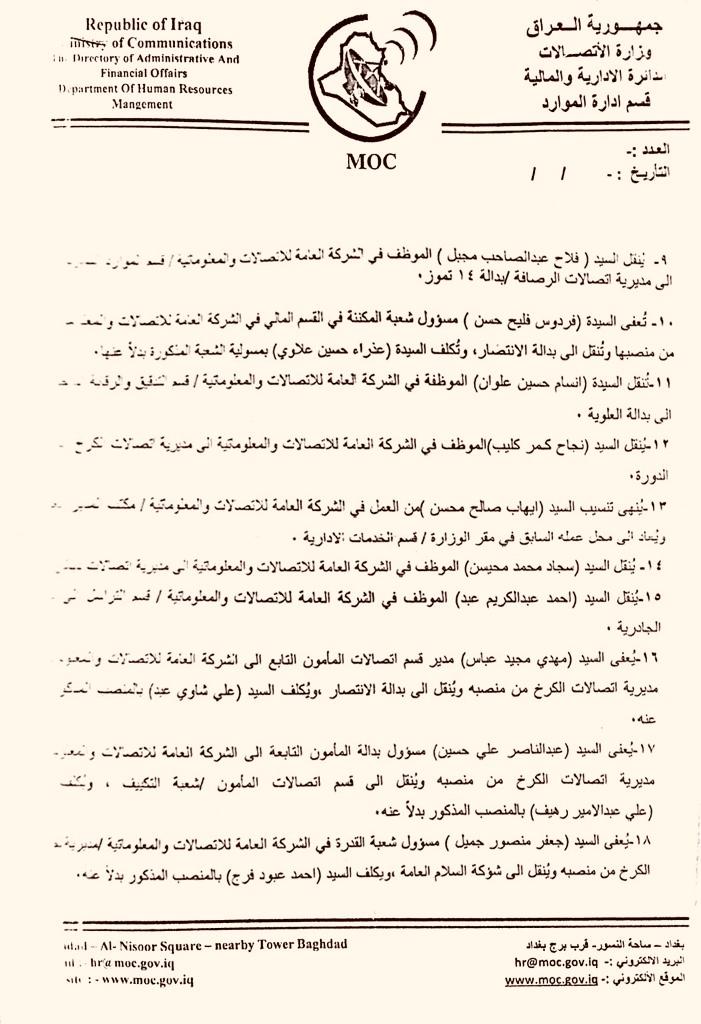 Republic of Iraq
Ministry of Communications
Directory of Administrative And
Financial Affairs
Department Of Human Resources
Mangement
MOC
جمهورية العراق
وزارة الأتصالات
الدائرة الادارية والمالية
قسم ادارة الموارد
العدد :-
التأريخ :- / /
٩- يُنقل السيد ( فلاح عبدالصاحب مجبل ) الموظف في الشركة العامة للاتصالات والمعلوماتية / قسم الموارد
الى مديرية اتصالات الرصافة /بدالة ١٤ تموز.
١٠- تُعفى السيدة (فردوس فليح حسن ) مسؤول شعبة المكننة في القسم المالي في الشركة العامة للاتصالات
من منصبها وتُنقل الى بدالة الانتصار، وتُكلف السيدة (عذراء حسين علاوي) بمسولية الشعبة المذكورة بدلاً عنها.
١١-تُنقل السيدة (انسام حسين علوان) الموظفة في الشركة العامة للاتصالات والمعلوماتية / قسم التدقيق والرقابة
الى بدالة العلوية .
١٢-يُنقل السيد (نجاح كمر كليب)الموظف في الشركة العامة للاتصالات والمعلوماتية الى مديرية اتصالات الكرخ
الدورة.
١٣-يُنهى تنسيب السيد (ايهاب صالح محسن )من العمل في الشركة العامة للاتصالات والمعلوماتية / مكتب
ويُعاد الى محل عمله السابق في مقر الوزارة / قسم الخدمات الادارية .
١٤- يُنقل السيد (سجاد محمد محيسن) الموظف في الشركة العامة للاتصالات والمعلوماتية الى مديرية اتصالات
١٥-يُنقل السيد (احمد عبدالكريم عبد) الموظف في الشركة العامة للاتصالات والمعلوماتية / قسم التراسل الى
الجادرية .
١٦-يُعفى السيد (مهدي مجيد عباس) مدير قسم اتصالات المأمون التابع الى الشركة العامة للاتصالات
مديرية اتصالات الكرخ من منصبه ويُنقل الى بدالة الانتصار ،ويُكلف السيد (علي شاوي عبد) بالمنصب
عنه.
١٧-يُعفى السيد (عبدالناصر علي حسين) مسؤول بدالة المأمون التابعة الى الشركة العامة للاتصالات
مديرية اتصالات الكرخ من منصبه ويُنقل الى قسم اتصالات المأمون /شعبة التكييف ، ويُكلف
(علي عبدالامير رهيف) بالمنصب المذكور بدلاً عنه.
١٨-يُعفى السيد (جعفر منصور جميل ) مسؤول شعبة القدرة في الشركة العامة للاتصالات والمعلوماتية /مديرية
الكرخ من منصبه ويُنقل الى شركة السلام العامة ،ويكلف السيد (احمد عبود فرج) بالمنصب المذكور بدلاً عنه.
– Al- Nisoor Square – nearby Tower Baghdad
hr@moc.gov.iq
: - www.moc.gov.iq
بغداد – ساحة النسور- قرب برج بغداد
البريد الالكتروني :- hr@moc.gov.iq
الموقع الألكتروني :- www.moc.gov.iq